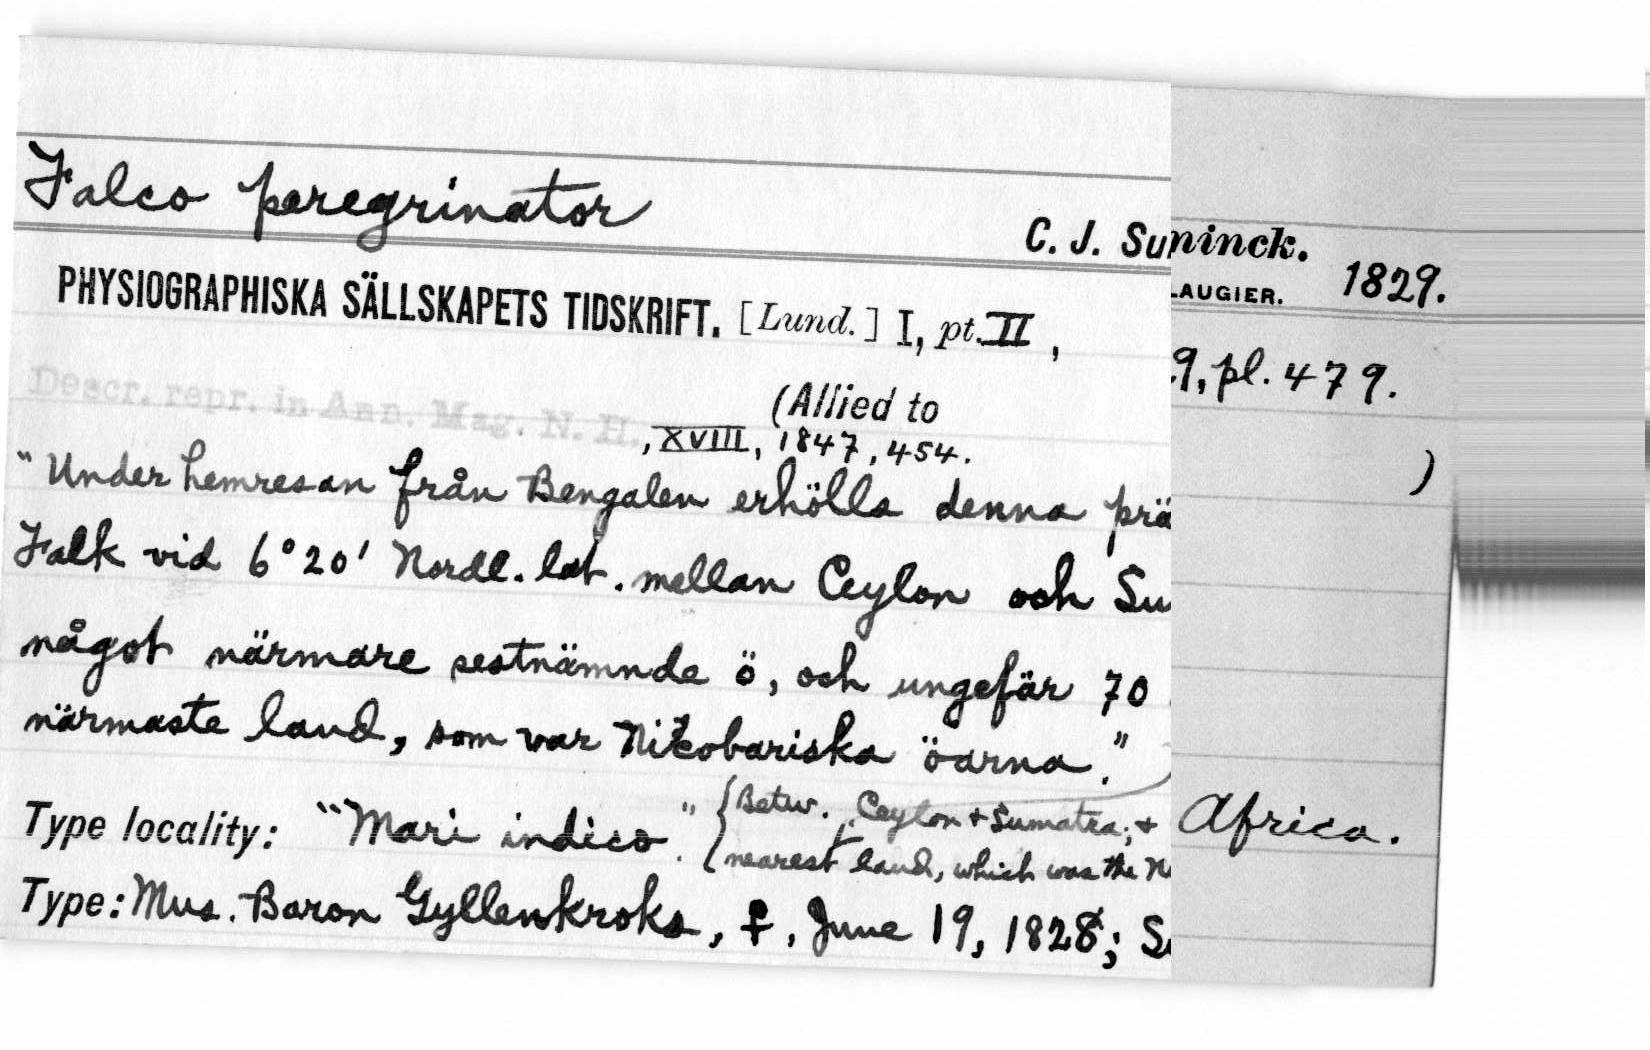 Falco peregrinator
C. J. Su
ninck.
LAUGIER. 1829.
PHYSIOGRAPHISKA SÄLLSKAPETS TIDSKRIFT. [Lund.] I, pt. II,
9, pl. 479.
(Allied to
)
Descr. repr. in Ann. Mag. N. H., XVIII, 1847, 454.
"Under hemresan från Bengalen erhölls denna prä
Falk vid 6°20' Nordl. lat. mellan Ceylon och Su
något närmare sestnämnde ö, och ungefär 70
närmaste land, som var Nikobariska öarna."
Type locality: "Mari indico".
{Betw. Ceylon + Sumatra; +
nearest land, which was the N
Africa.
Type: Mus. Baron Gyllenkroks, ♀, June 19, 1828; S